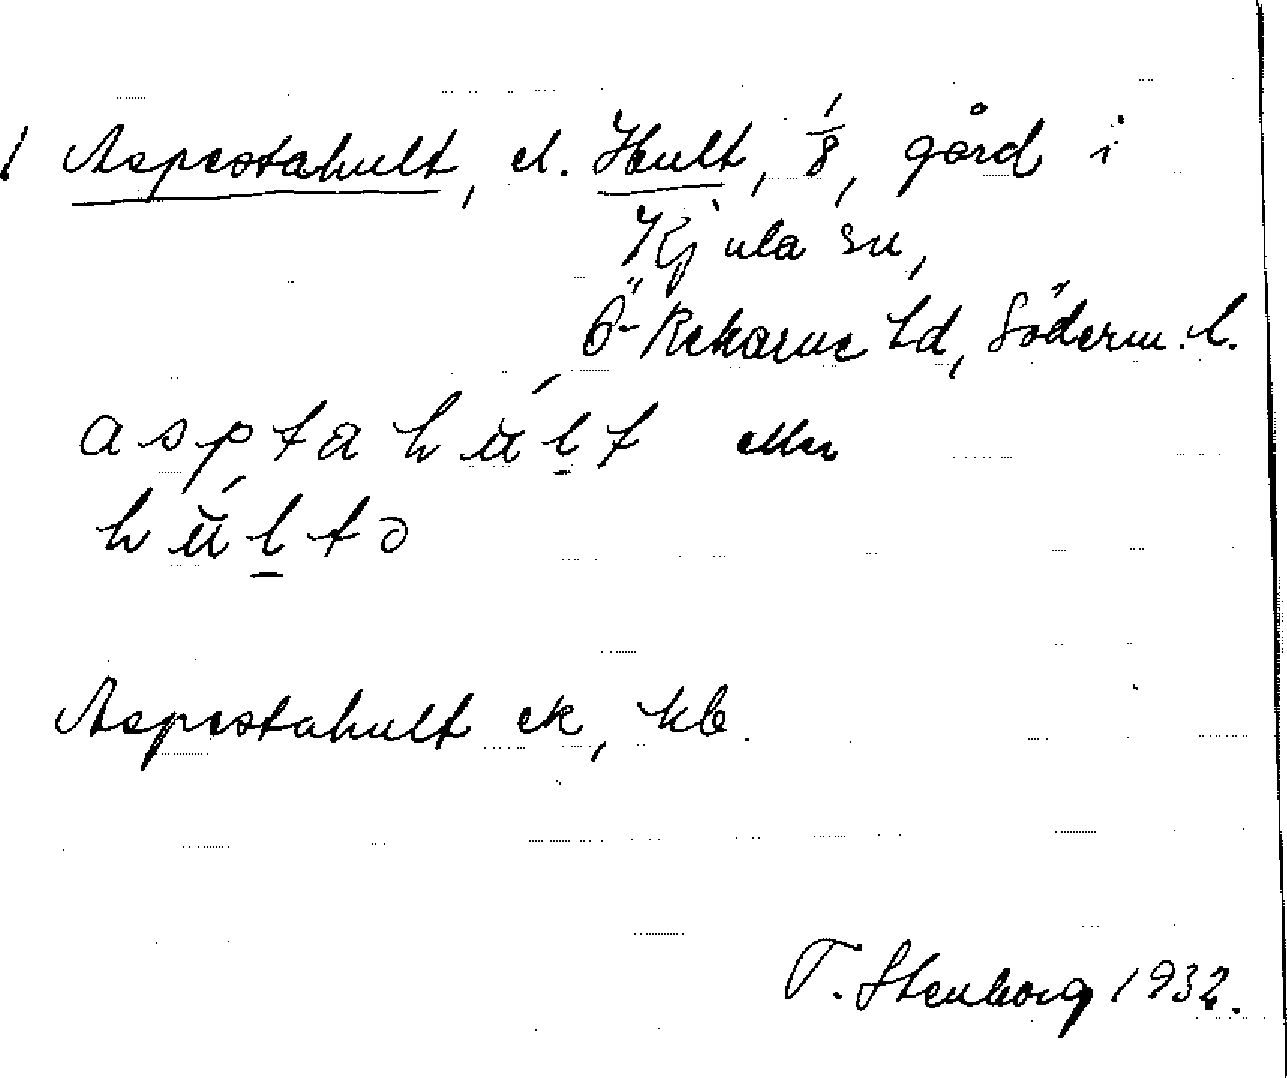 Aspestahult, el. Hult, 1/8, gård i
Kjula sn,
Ö-Rekarne hd, Söderm. l.
asptahult eller
hultə
Aspestahult ek, kb.
T. Stenborg 1932.